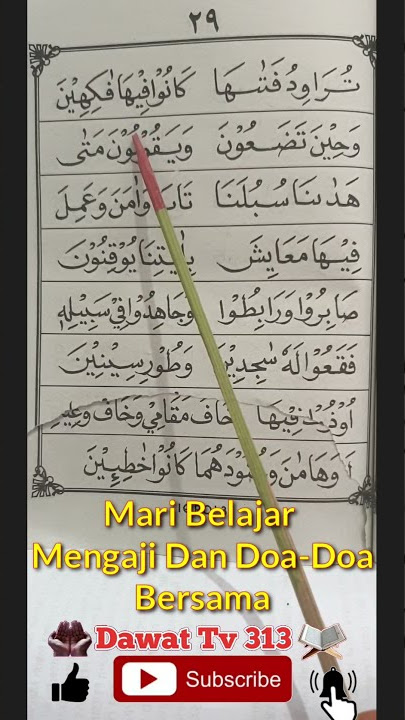 ٢٩
تُرَاوِدُ فَتٰىهَا كَانُوْا فِيْهَا فٰكِهِيْنَ
وَحِيْنَ تَضَعُوْنَ وَيَقُوْلُوْنَ مَتٰى
هَدٰىنَا سُبُلَنَا تَابَ وَاٰمَنَ وَعَمِلَ
فِيْهَا مَعَايِشَ بِاٰيٰتِنَا يُوْقِنُوْنَ
صَابِرُوْا وَرَابِطُوْا وَجَاهِدُوْا فِيْ سَبِيْلِهٖ
فَقَعُوْا لَهٗ سٰجِدِيْنَ وَطُوْرِ سِيْنِيْنَ
اُوْذِيْنَا خَافَ مَقَامِيْ وَخَافَ وَعِيْدِ
وَهَامٰنَ وَجُنُوْدَهُمَا كَانُوْا خٰطِـِٕيْنَ
Mari Belajar
Mengaji Dan Doa-Doa
Bersama
Dawat Tv 313
Subscribe